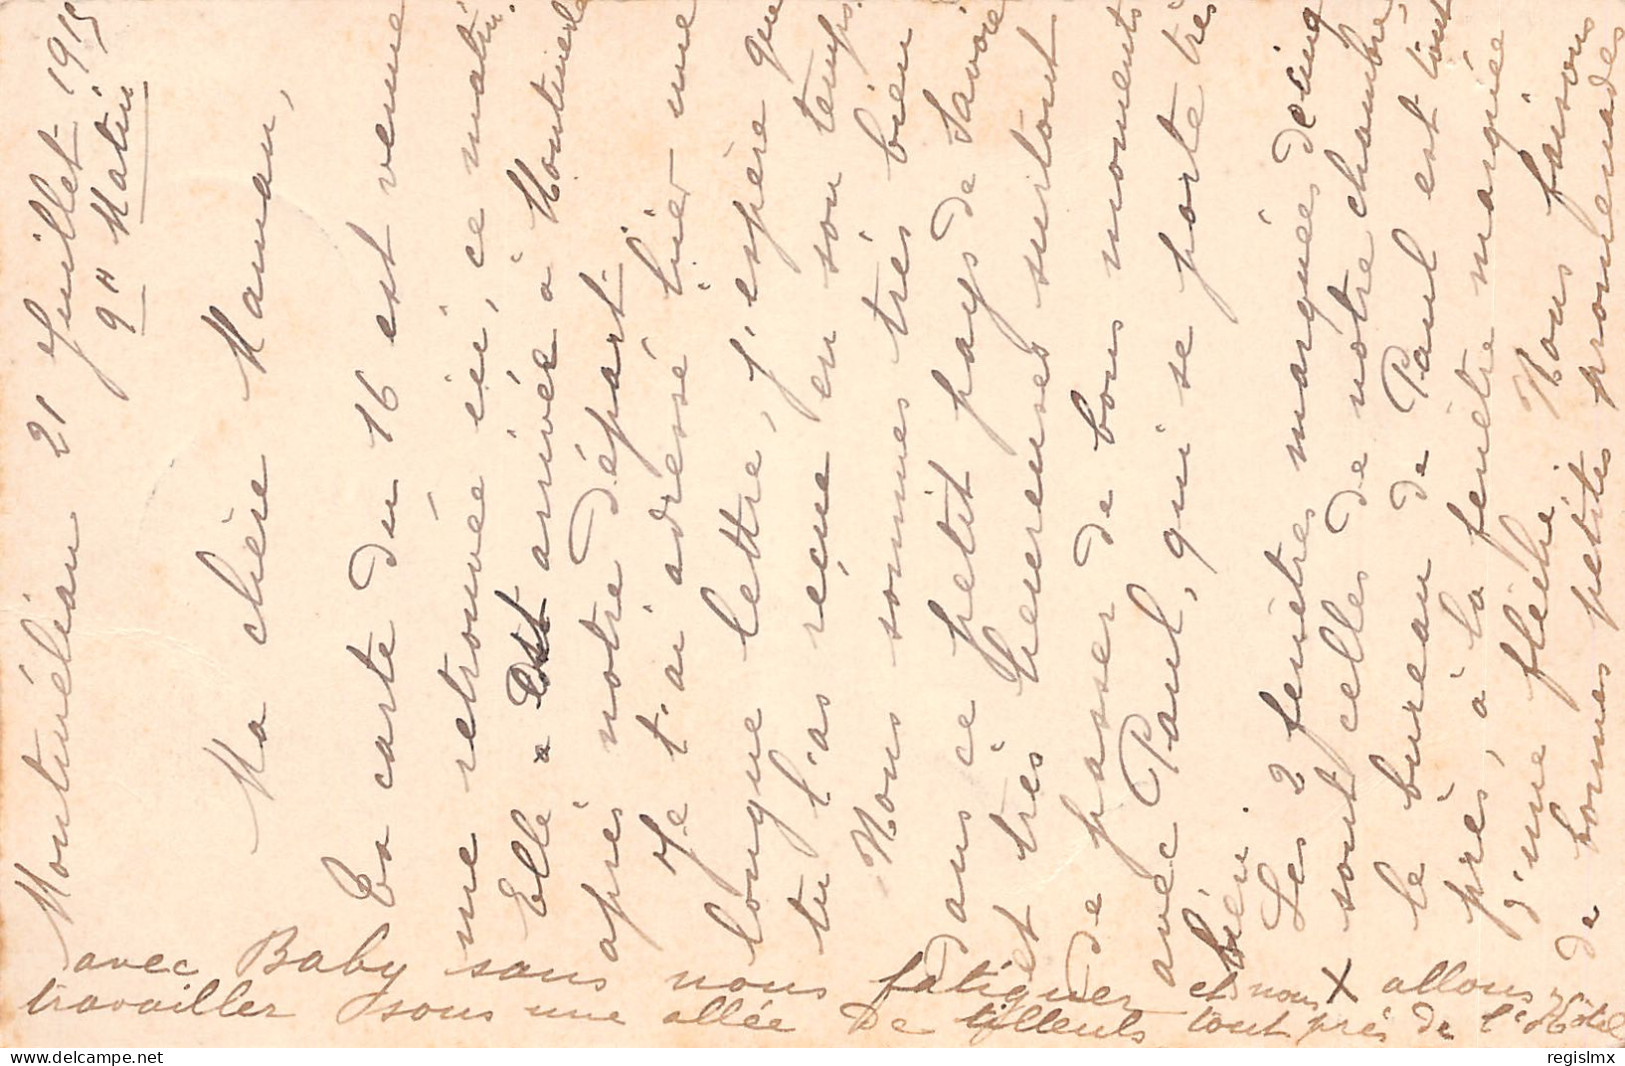 Montmélian 21 Juillet 1915
9H Matin
Ma chère Maman,
Ta carte du 16 est venue
me retrouvée ici, ce matin.
Elle est arrivée à
après notre départ.
Je t'ai adressé hier une
longue lettre, j'espère que
tu l'as reçue en son temps.
Nous sommes très bien
dans ce petit pays de Savoie
et très heureuses surtout
de passer de bons moments
avec Paul, qui se porte très
bien.
Les 2 fenêtres marquées de cinq
X sont celles de notre chambre,
le bureau de Paul est tout
près, à la fenêtre marquée
d'une flèche. Nous faisons
de bonnes petites promenades
avec Baby sans nous fatiguer et nous allons
travailler sous une allée de tilleuls tout près de l'Hôtel
regislmx